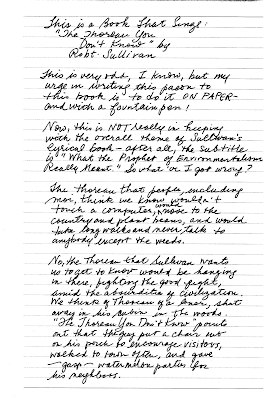 This is a Book That Sings:
"The Thoreau You
Don't Know" by
Robt Sullivan
This is very odd, I know, but my
urge in writing this paean to
this book is to do it ON PAPER -
and with a fountain pen!
Now, this is NOT really in keeping
with the overall theme of Sullivan's
lyrical book - after all, the subtitle
is "What the Prophet of Environmentalism
Really Meant." So what've I got wrong?
The Thoreau that people, including
moi, think we know wouldn't
touch a computer, move to the
country and plant beans, and would
take long walks and never talk to
anybody except the weeds.
No, the Thoreau that Sullivan wants
us to get to know would be hanging
in there, fighting the good fight,
amid the absurdities of civilization.
We think of Thoreau as a loner, shut
away in his cabin in the woods.
"The Thoreau You Don't Know" points
out that the guy put a chair out
on his porch to encourage visitors,
walked to town often, and gave
- gasp - watermelon parties for
his neighbors.